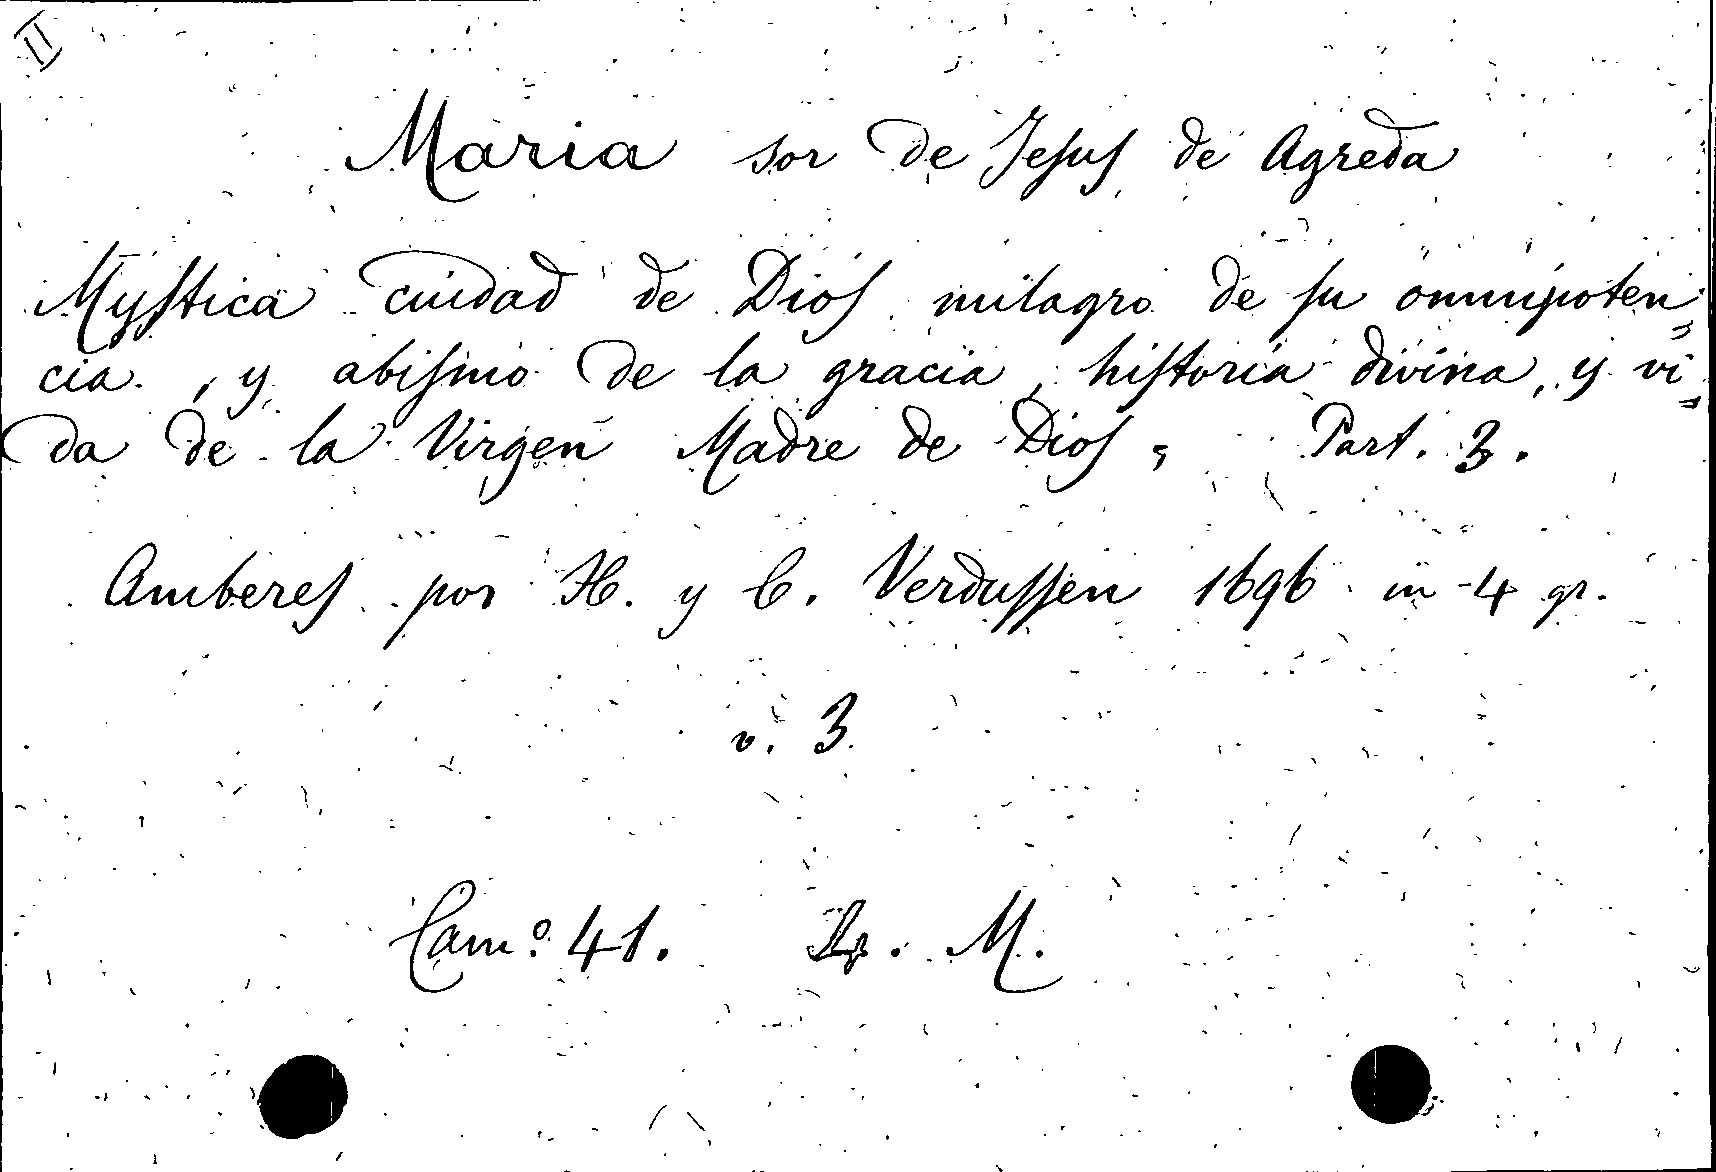 II
Maria sor de Jesus de Agreda
Mystica ciudad de Dios milagro de su omnipoten=
cia, y abismo de la gracia, historia divina, y vi=
da de la Virgen Madre de Dios, Part. 3.
Amberes por H. y C. Verdussen 1696 in 4 gr.
v. 3
Cam.º 41. M.